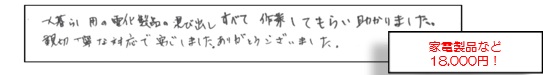 一人暮らし用の電化製品の見び出しすべて作業してもらい助かりました。
親切丁寧な対応で安心しました。ありがとうございました。
家電製品など
18,000円！